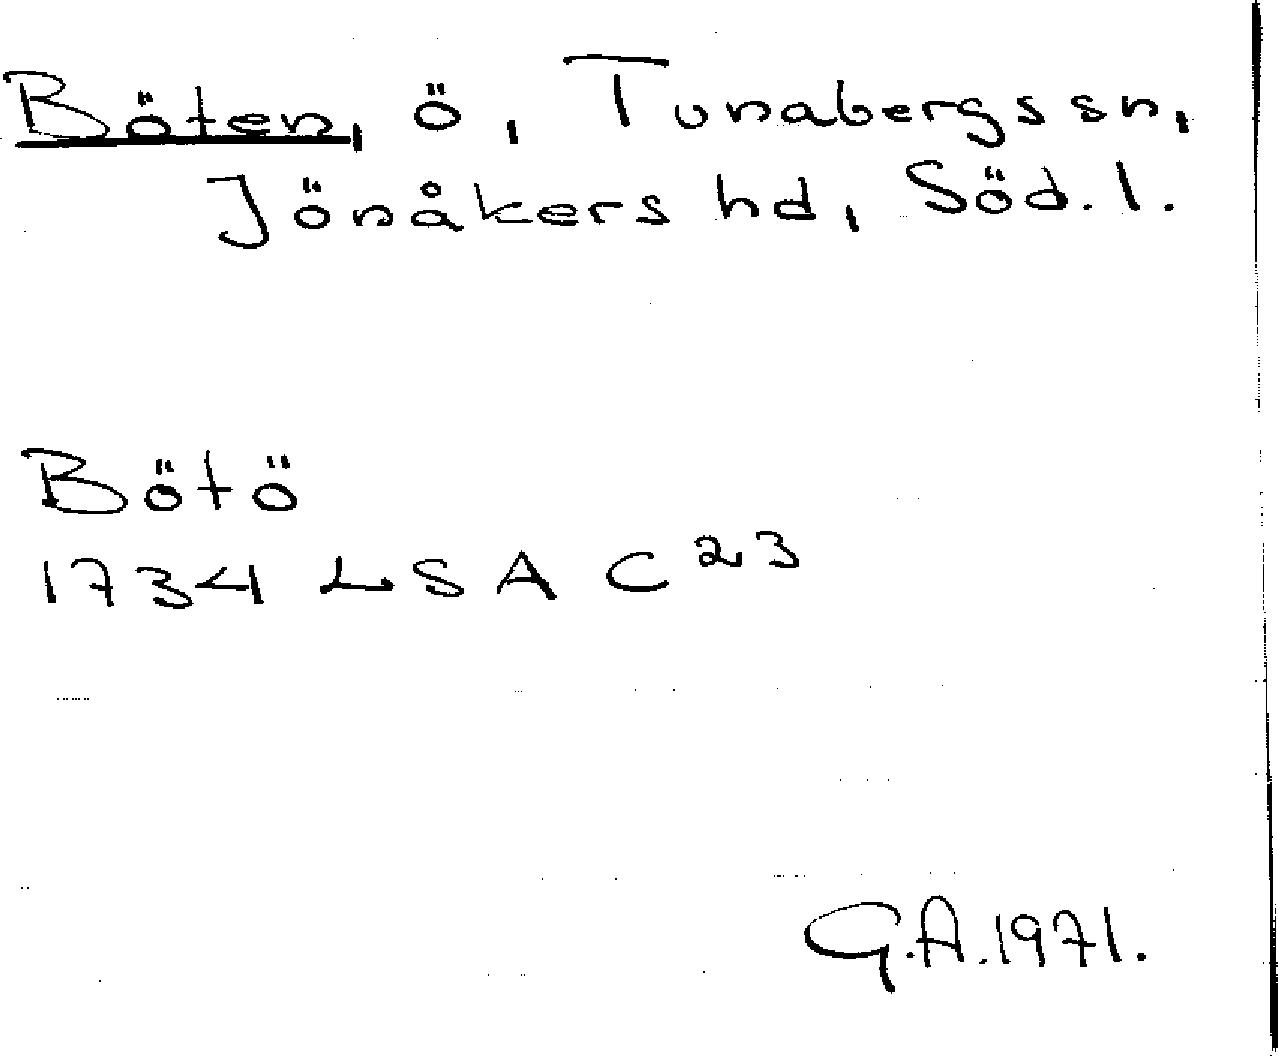 Böten, ö, Tunabergs sn,
Jönåkers hd, Söd. l.
Bötö
1734 LSA C 23
G.A. 1971.